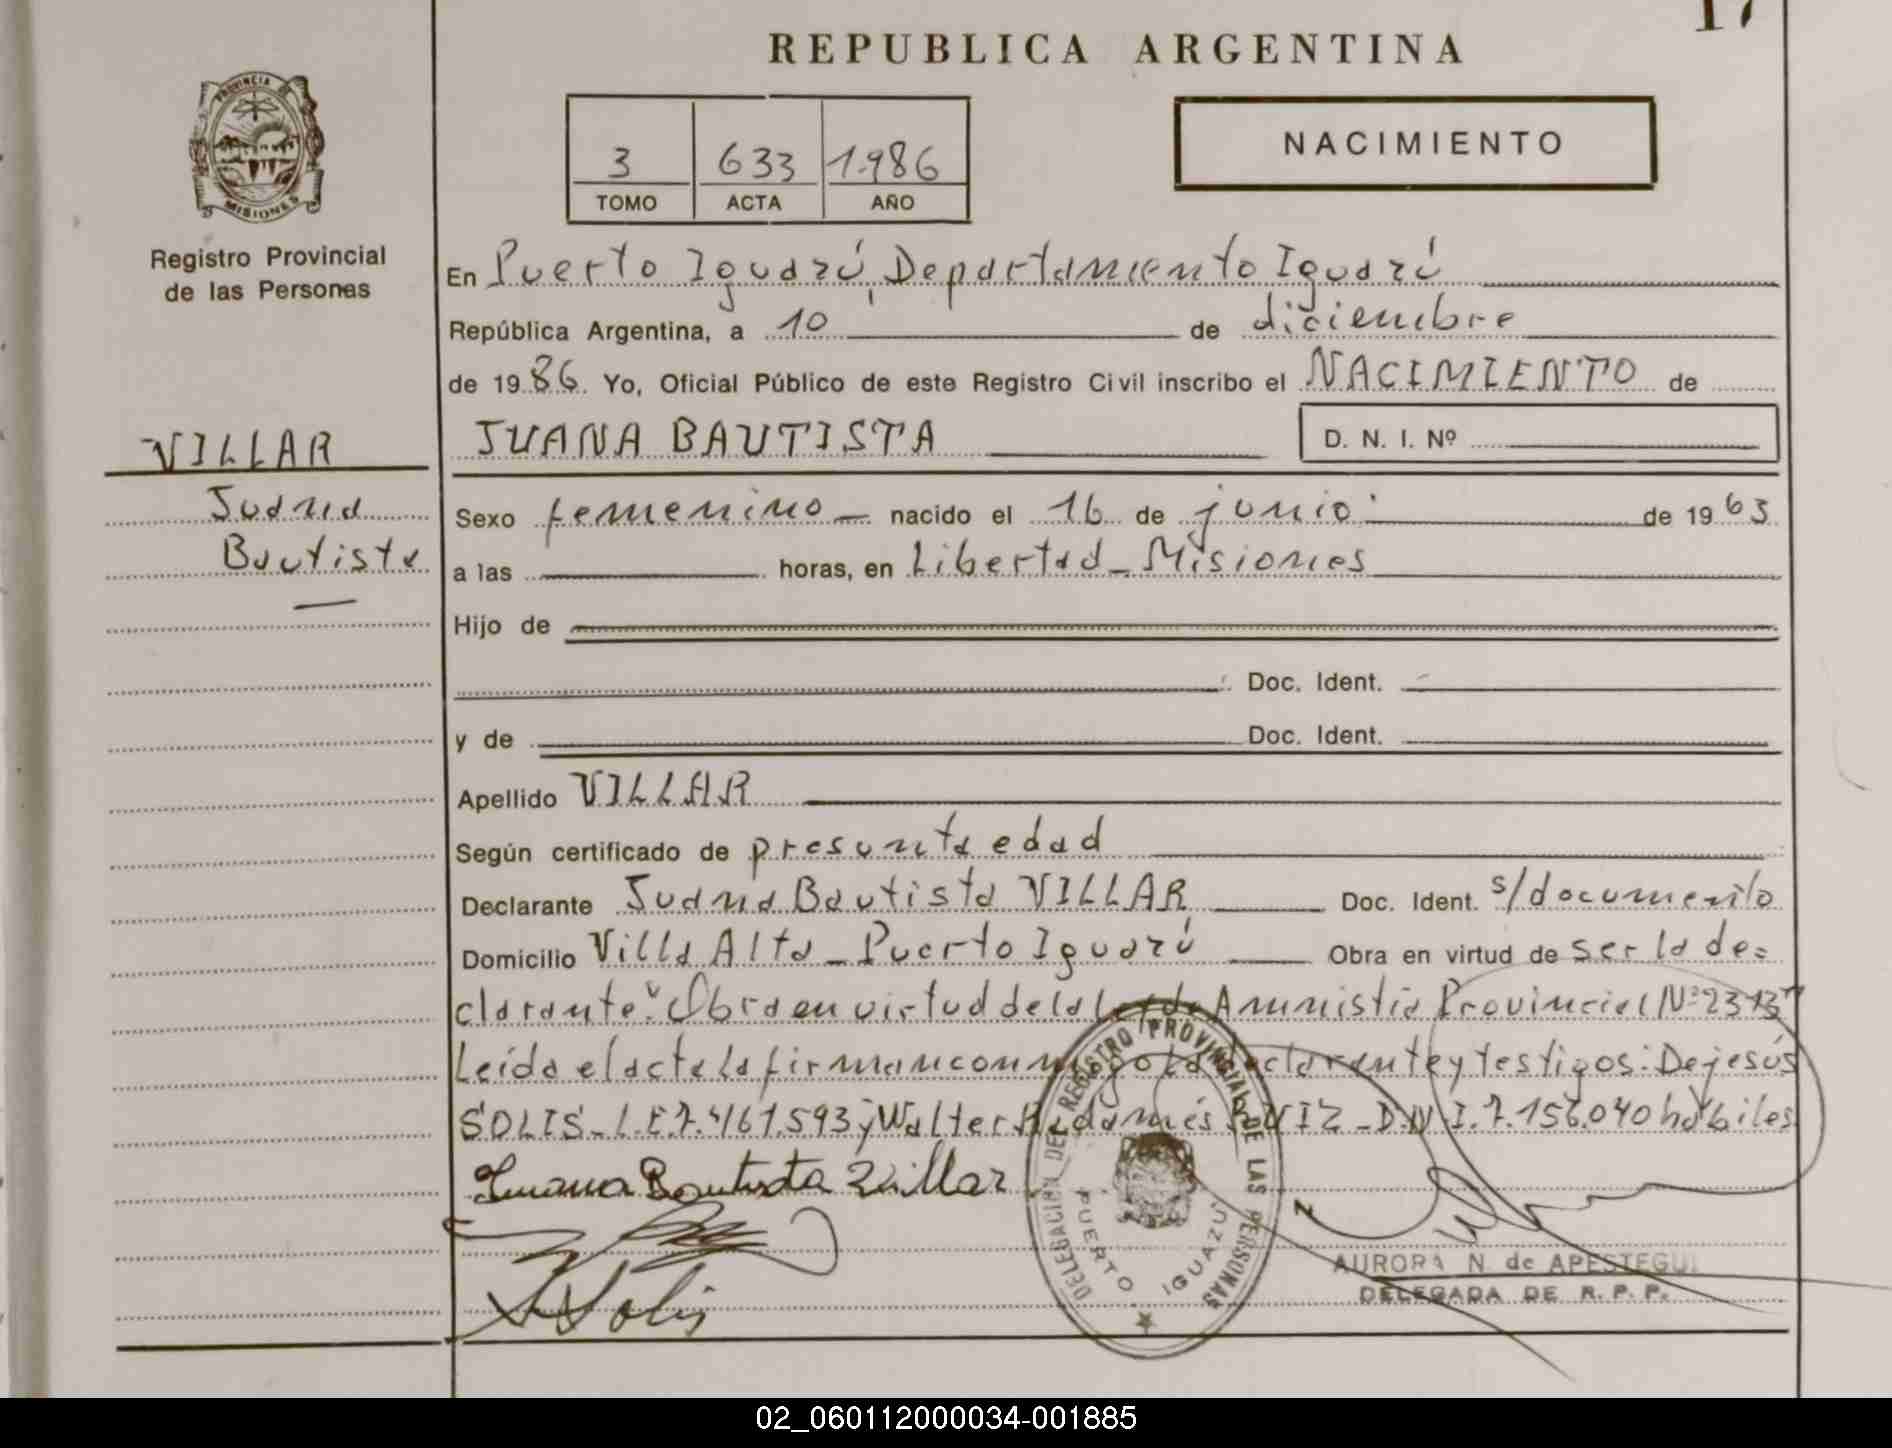 17
REPUBLICA ARGENTINA
PROVINCIA DE
MISIONES
3 633 1.986
TOMO ACTA AÑO
NACIMIENTO
Registro Provincial
de las Personas
En Puerto Iguazú, Departamiento Iguazú
República Argentina, a 10 de diciembre
de 1986. Yo, Oficial Público de este Registro Civil inscribo el NACIMIENTO de
JUANA BAUTISTA
D. N. I. Nº
VILLAR
Juana
Bautista
Sexo femenino nacido el 16 de junio de 1963
a las horas, en Libertad - Misiones
Hijo de
Doc. Ident.
y de Doc. Ident.
Apellido VILLAR
Según certificado de presunta edad
Declarante Juana Bautista VILLAR Doc. Ident. s/documento
Domicilio Villa Alta - Puerto Iguazú Obra en virtud de ser la de=
clarante. Obra en virtud de la Ley de Amnistia Provincial Nº
Leída el acta la firman conmigo la declarante y testigos: Dejesús
SOLIS - L.E.7.467.593 y Walter - D.N.I.7.156.040 hábiles
Juana Bautista Villar
Solis
DELEGACION DEL REGISTRO PROVINCIAL DE LAS PERSONAS
PUERTO IGUAZU
AURORA N. de APESTEGUI
DELEGADA DE R. P. P.
02_060112000034-001885